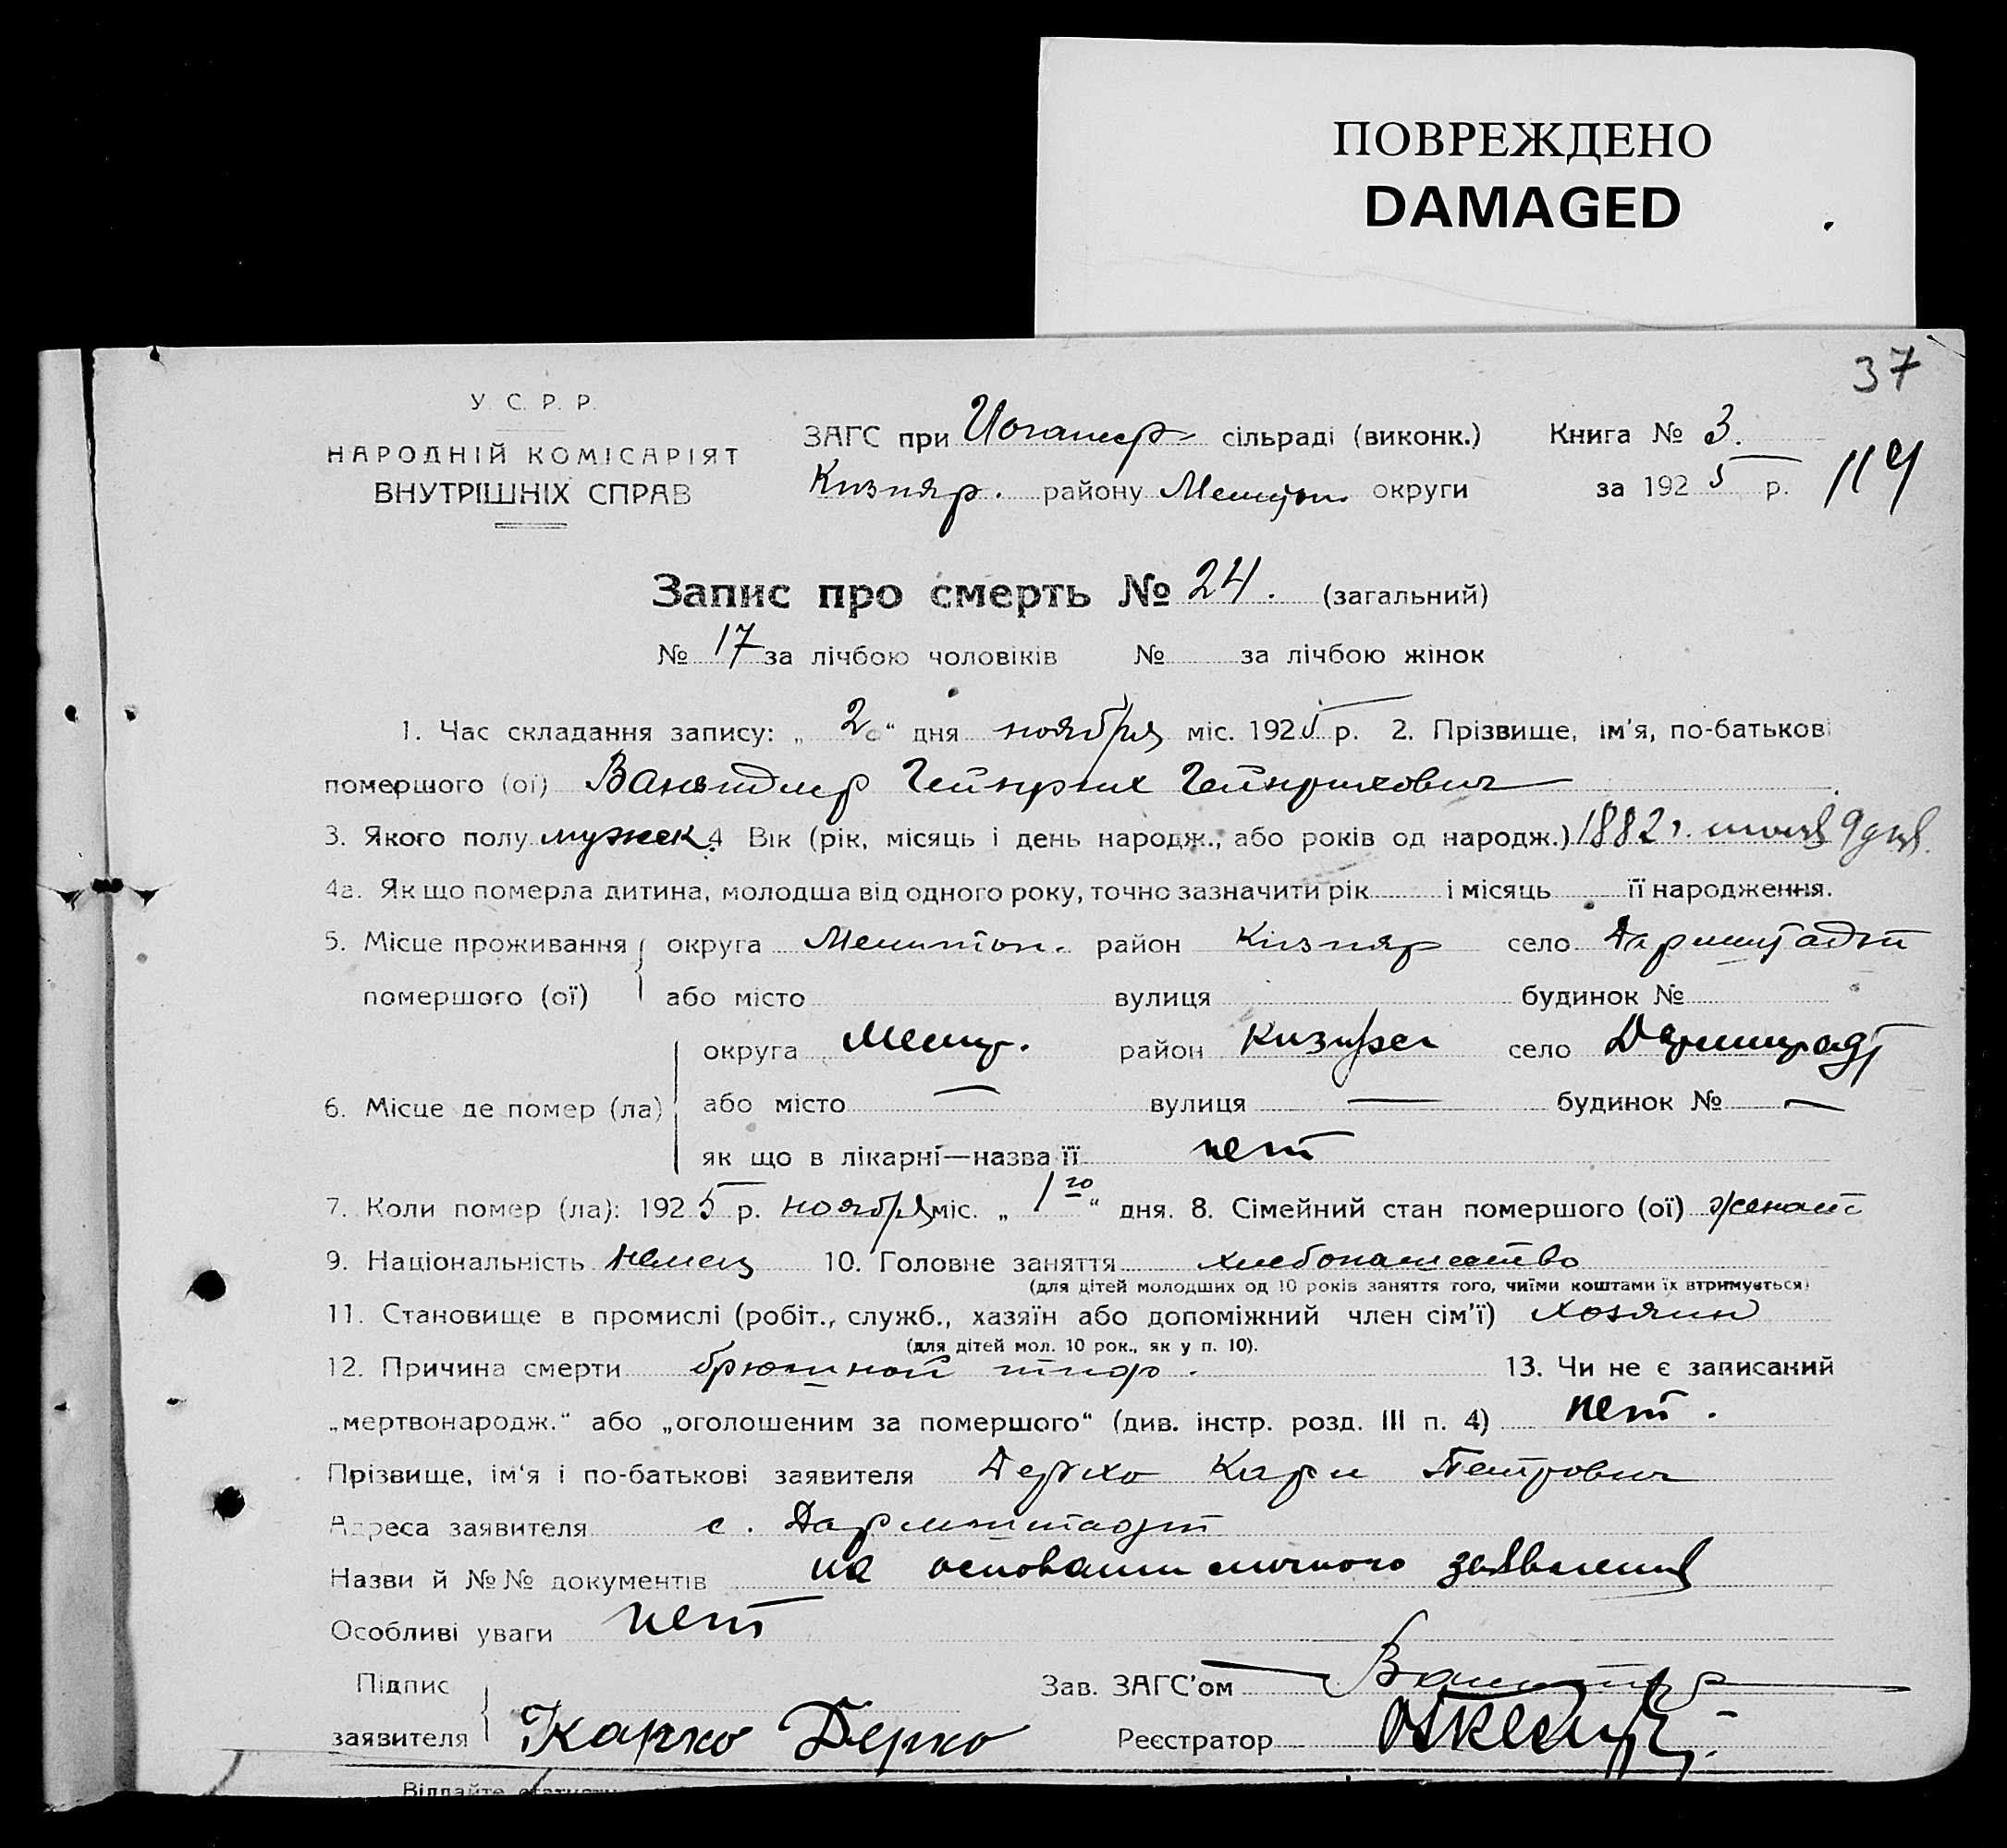 ПОВРЕЖДЕНО
DAMAGED
37
У. С. Р. Р.
НАРОДНІЙ КОМІСАРІЯТ
ВНУТРІШНІХ СПРАВ
ЗАГС при сільраді (виконк.)
Кизияр. району Мелитоп. округи
Книга № 3.
за 1925 р.
114
Запис про смерть № 24. (загальний)
№ 17 за лічбою чоловіків № за лічбою жінок
1. Час складання запису: „ 2 “ дня ноября міс. 1925 р. 2. Прізвище, ім'я, по-батькові
помершого (ої) Гейнрих Гейнрихович
3. Якого полу мужск. 4 Вік (рік, місяць і день народж., або років од народж.) 1882 г. 9 дня.
4а. Як що померла дитина, молодша від одного року, точно зазначити рік і місяць її народження.
5. Місце проживання округа Мелитоп. район Кизияр село Дармштадт
помершого (ої) або місто вулиця будинок №
округа Мелит. район Кизияр село Дармштадт
6. Місце де помер (ла) або місто — вулиця — будинок № —
як що в лікарні—назва її нет
7. Коли помер (ла): 1925 р. ноября міс. „ 1го “ дня. 8. Сімейний стан помершого (ої) женат
9. Національність немец 10. Головне заняття хлебопашество
(для дітей молодших од 10 років заняття того, чиїми коштами їх втримується)
11. Становище в промислі (робіт., служб., хазяїн або допоміжний член сім'ї) хозяин
(для дітей мол. 10 рок., як у п. 10).
12. Причина смерти брюшной тиф. 13. Чи не є записаний
„мертвонародж.“ або „оголошеним за помершого“ (див. інстр. розд. III п. 4) нет.
Прізвище, ім'я і по-батькові заявителя Дерхо Карл Петрович
Адреса заявителя с. Дармштадт
Назви й №№ документів на основании личного заявления
Особливі уваги нет
Підпис
заявителя
Карло Дерко
Зав. ЗАГС'ом
Реєстратор
Віддайте